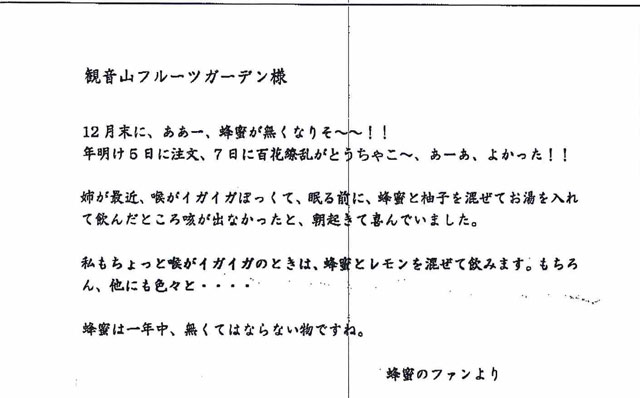 観音山フルーツガーデン様
12月末に、ああー、蜂蜜が無くなりそ～～！！
年明け5日に注文、7日に百花繚乱がとうちゃこ～、あーあ、よかった！！
姉が最近、喉がイガイガぽっくて、眠る前に、蜂蜜と柚子を混ぜてお湯を入れ
て飲んだところ咳が出なかったと、朝起きて喜んでいました。
私もちょっと喉がイガイガのときは、蜂蜜とレモンを混ぜて飲みます。もちろ
ん、他にも色々と・・・・
蜂蜜は一年中、無くてはならない物ですね。
蜂蜜のファンより